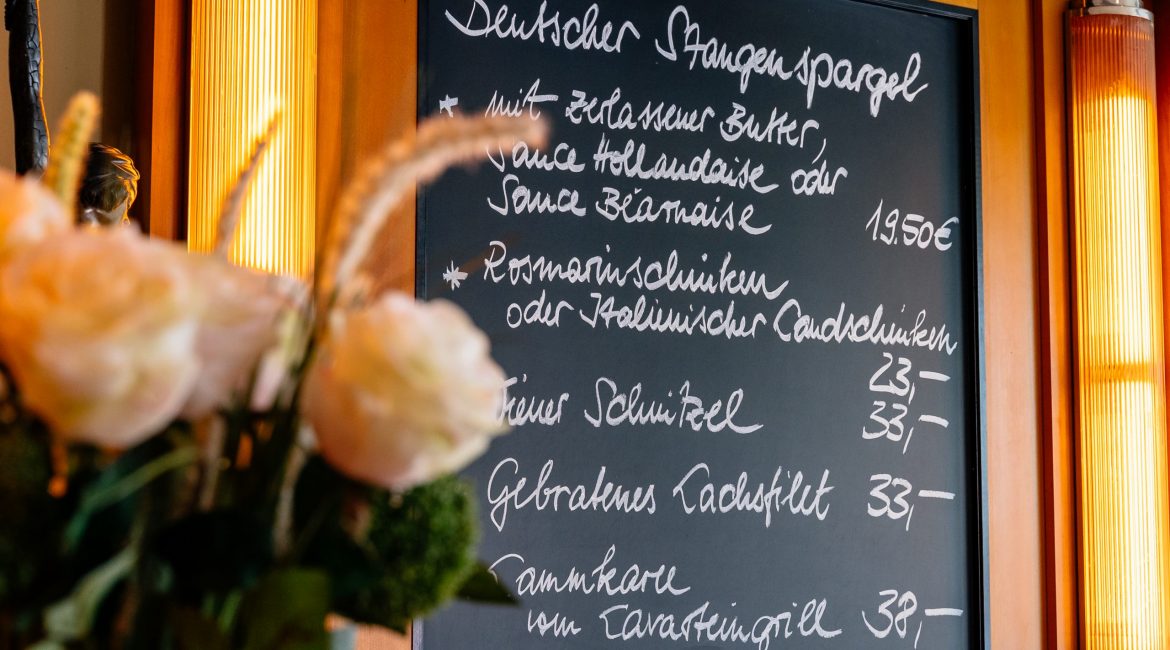 Deutscher Stangenspargel
* mit zerlassener Butter,
Sauce Hollandaise oder
Sauce Béarnaise 19.50€
* Rosmarinschinken
oder Italienischer Landschinken
23,-
Wiener Schnitzel 33,-
Gebratenes Lachsfilet 33,-
Lammkaree
vom Lavasteingrill 38,-